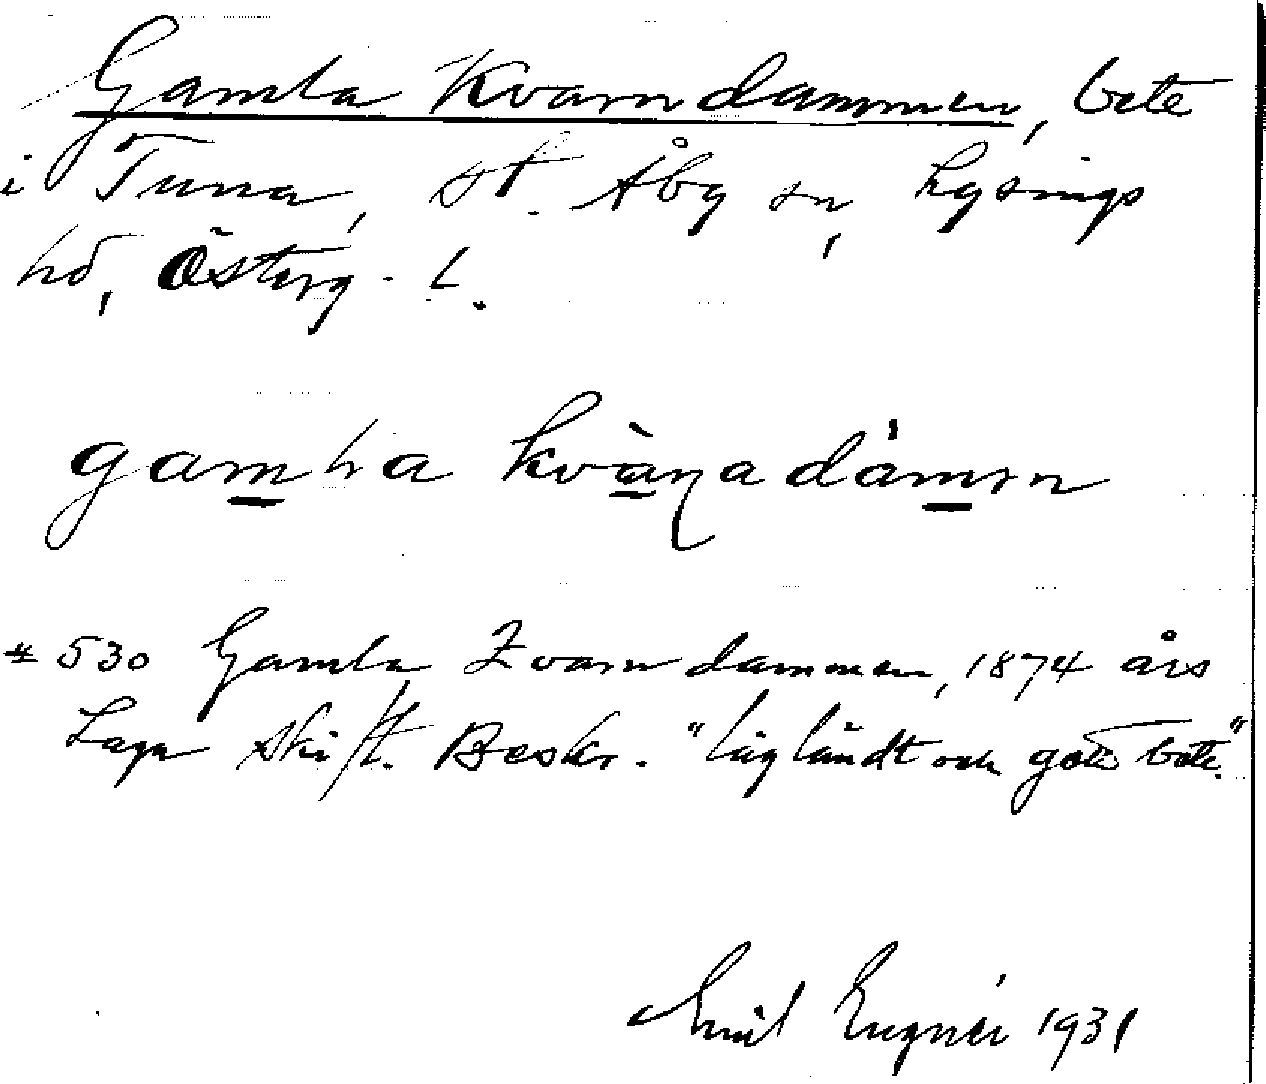 Gamla Kvarndammen, bete
i Tuna, St. Åby sn, Lysings
hd, Österg. l.
gamla kvàɳadámən
# 530 Gamla Qvarndammen, 1874 års
Laga Skift. Beskr. "lågländt och godt bete."
Emil 1931